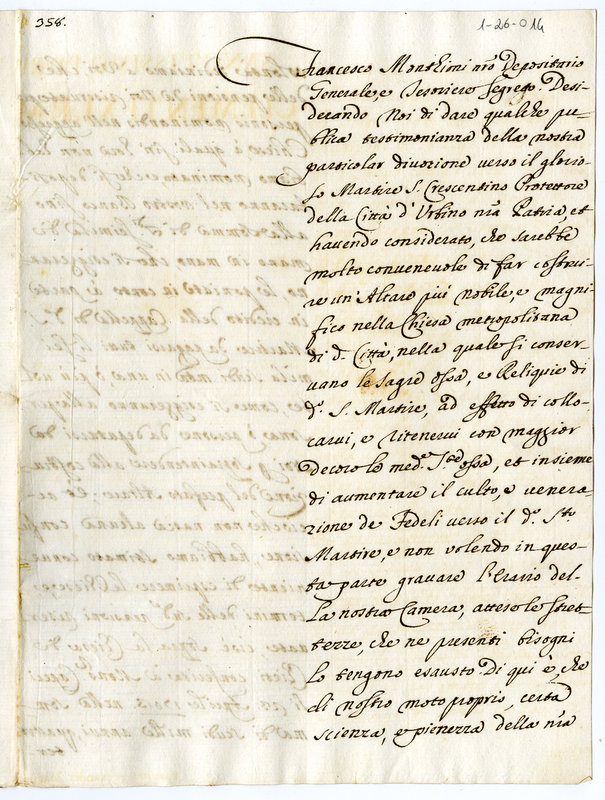 358.
1-26-014
Francesco Monthioni nr̃o Depositario
Generale, e Tesoriero Segreto. Desi-
derando Noi di dare qualche pu-
blica testimonianza della nostra
particolar divozione verso il glorio-
so Martire S. Crescentino Protettore
della Città d'Urbino nr̃a Patria, et
havendo considerato, che sarebbe
molto convenevole di far costrui-
re un'Altare più nobile, e magni-
fico nella Chiesa metropolitana
di d.ª Città, nella quale si conser-
vano le sagre ossa, e Reliquie di
d.º S. Martire, ad effetto di collo-
carvi, e ritenervi con maggior
decoro le med.e S.e ossa, et insieme
di aumentare il culto, e venera-
zione de Fedeli verso il d.º S.to
Martire, e non volendo in ques-
ta parte gravare l'Erario del-
la nostra Camera, attese le stret-
tezze, che ne presenti bisogni
lo tengono esausto. Di qui è, che
di nostro moto proprio, certa
scienza, e pienezza della nr̃a